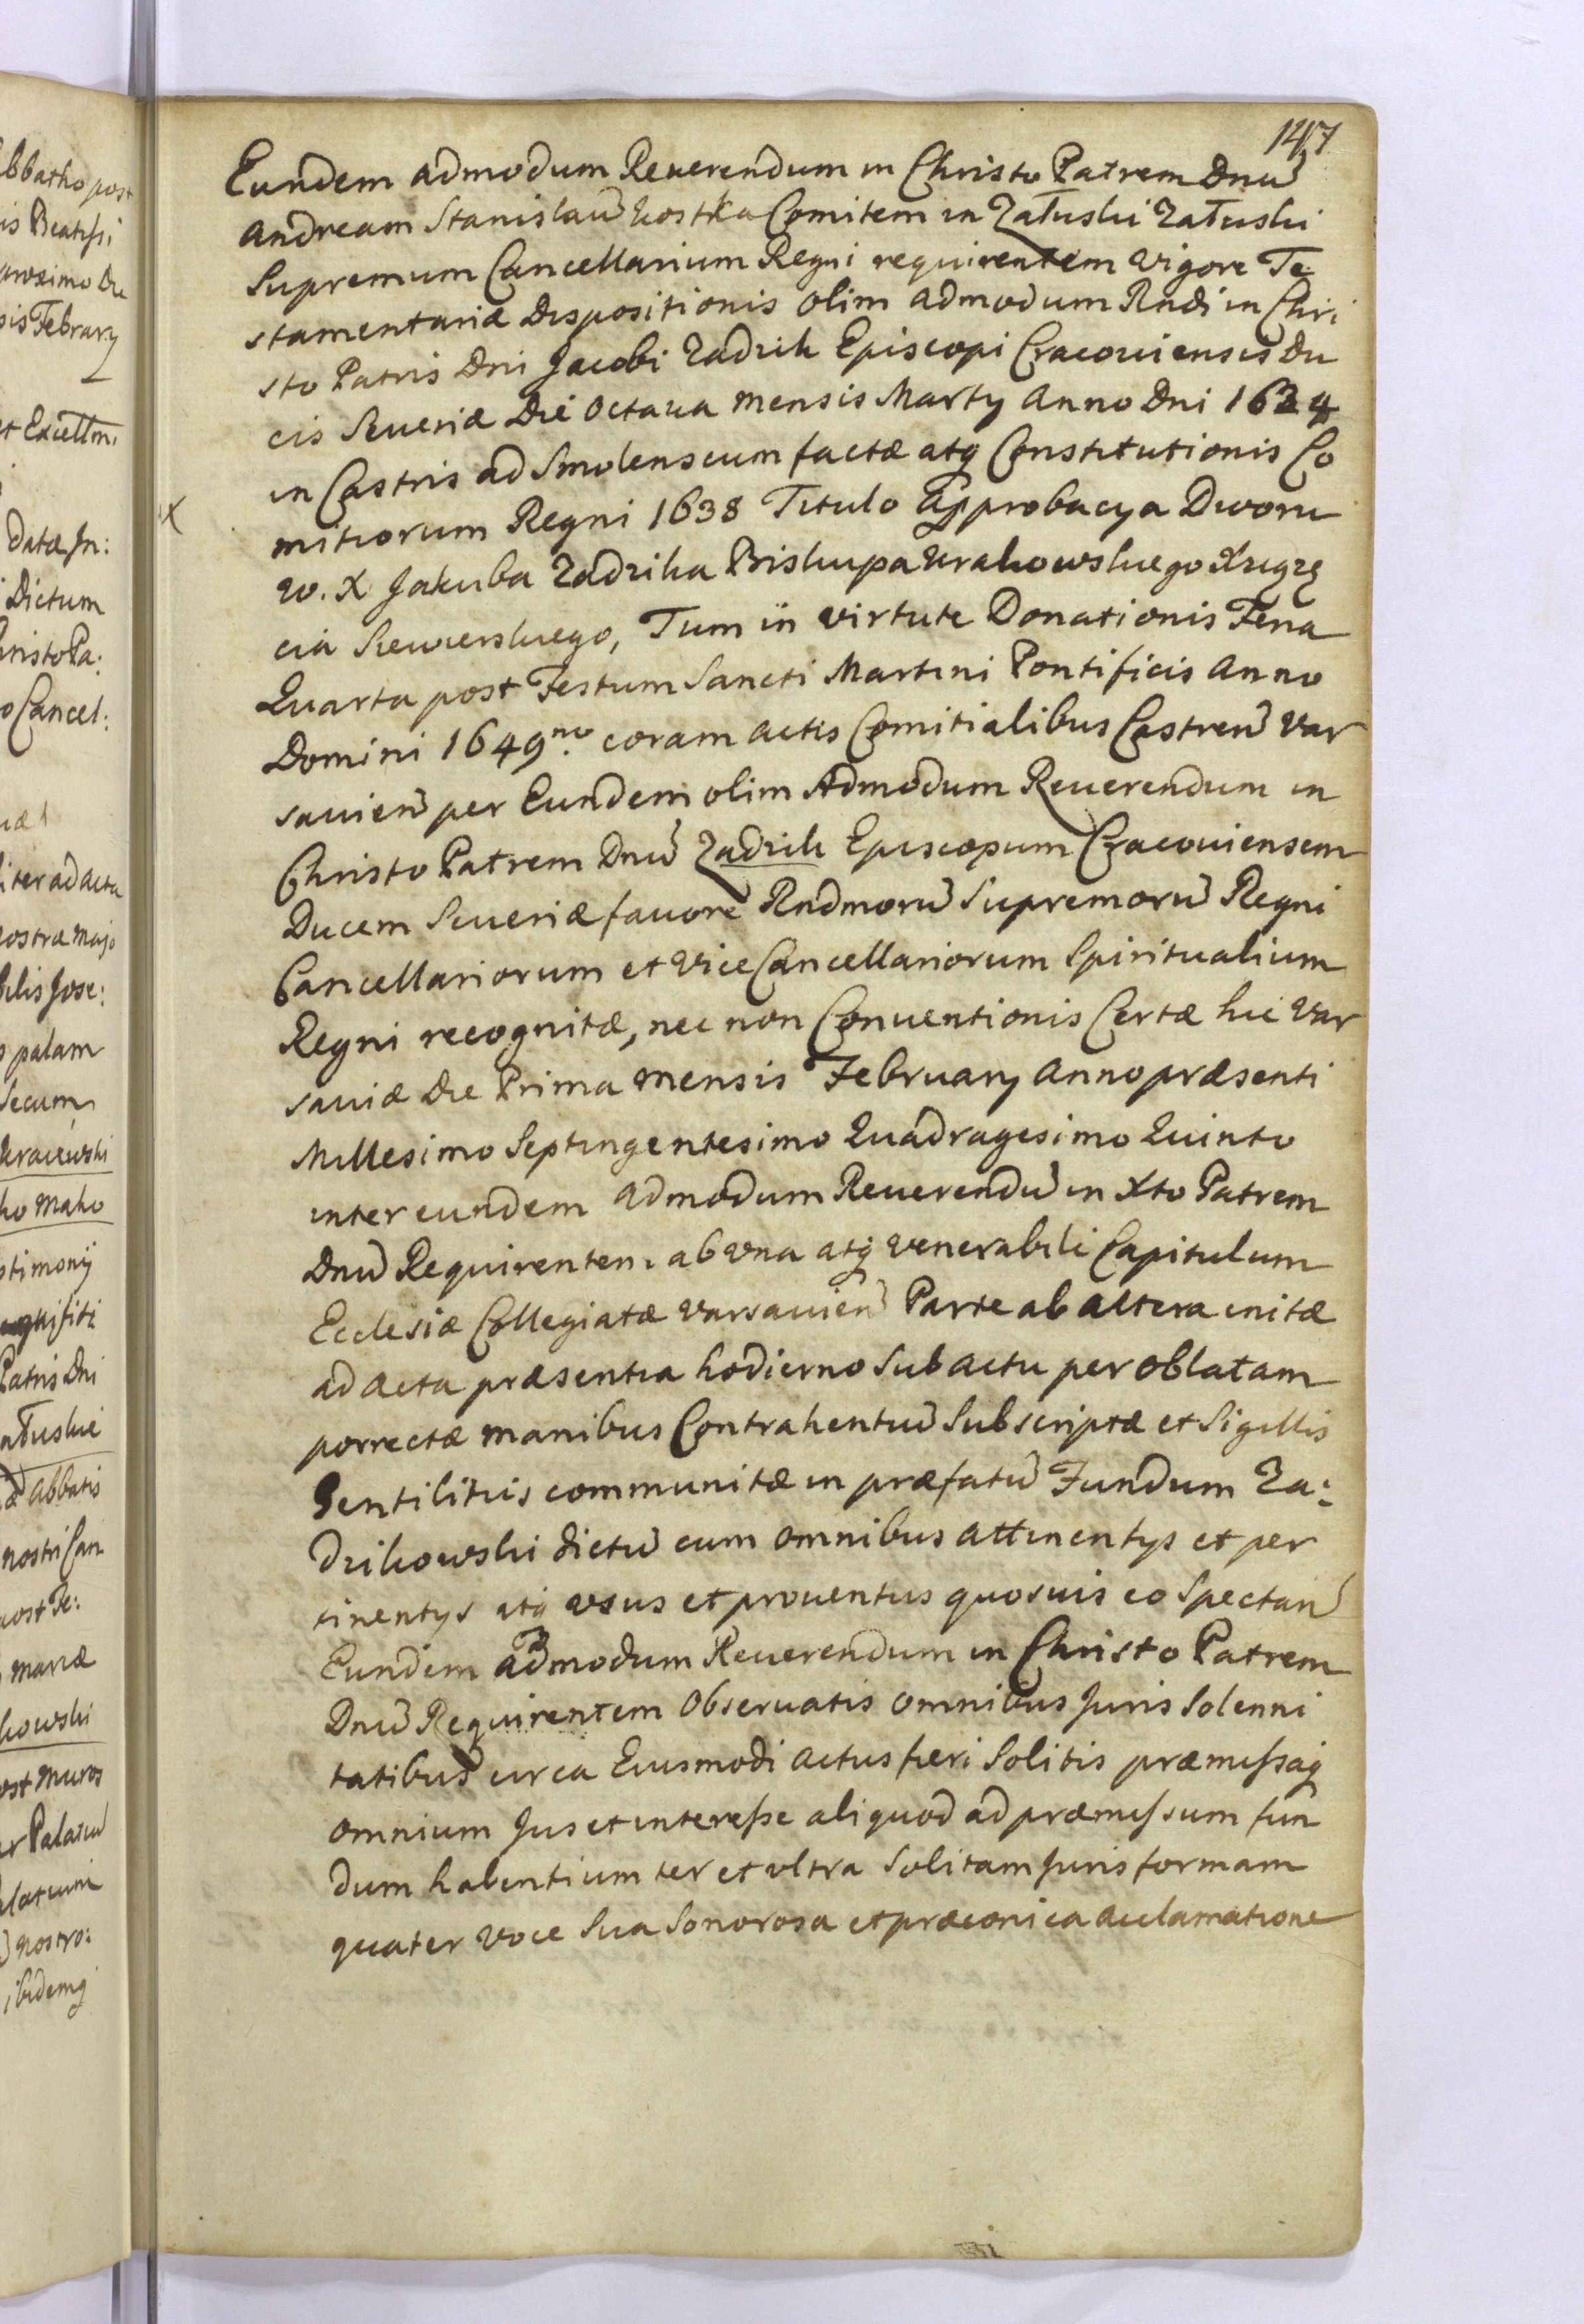 bbatho post
is Beatissi
proximo Die
sis Februarij
et Excellmi
Datæ In:
Dictum
hristo Pa:
o Cancel:
iter ad acta
nostræ Majo
bilis Jose:
s palam
secum
Krajewski
ho Maho
stimonij
Patris Dni
ałuskie
æ Abbatis
nostri Can
post Fe:
Mariæ
kowski
ost Muros
er Palatiũ
alatium
nostro:
ibidemq
147
Eundem admodum Reuerendum in Christo Patrem Dnũ
Andream Stanislaũ Kostka Comitem in Załuski Załuski
Supremum Cancellarium Regni requirentem vigore Te
stamentariæ Dispositionis olim admodum Rndi in Chri
sto Patris Dni Jacobi Zadzik Episcopi Cracouiensis Du
cis Seueriæ Die Octaua mensis Martij Anno Dni 1634
in Castris ad Smolenscum factæ atq Constitutionis Co
x
mitiorum Regni 1638 Titulo Approbacya Dworu
w. X Jakuba Zadzika Biskupa Krakowskiego Xiążę
cia Siewierskiego, Tum in virtute Donationis Feria
Quarta post Festum Sancti Martini Pontificis Anno
Domini 1649no coram actis Comitialibus Castreñ Var
sauieñ per Eundem olim Admodum Reuerendum in
Christo Patrem Dnũ Zadzik Episcopum Cracouiensem
Ducem Seueriæ fauore Rndmorũ Supremorũ Regni
Cancellariorum et vice Cancellariorum Spiritualium
Regni recognitæ, nec non Conuentionis Certæ hic Var
sauiæ Die Prima mensis February Anno præsenti
Millesimo Septingentesimo Quadragesimo Quinto
inter eundem admodum Reuerendũ in Xto Patrem
Dnũ Requirentem ab vna atq venerabili Capitulum
Ecclesiæ Collegiatæ varsauieñ Parte ab altera initæ
ad acta præsentia hodierno sub actu per oblatam
porrectæ manibus Contrahentiũ subscriptæ et Sigillis
Gentilitiis communitæ in præfatũ Fundum Za:
dzikowski dictũ cum omnibus attinentijs et per
tinentijs atq vsus et prouentus quosuis eo spectañ
Eundem admodum Reuerendum in Christo Patrem
Dnũ Requirentem Obseruatis omnibus Juris Solenni
tatibus circa Eiusmodi actus fieri Solitis præmissaq
omnium Jus et interesse aliquod ad præmissum fun
dum habentium ter et vltra Solitam Juris formam
quater voce sua Sonorosa et præconica acclamatione